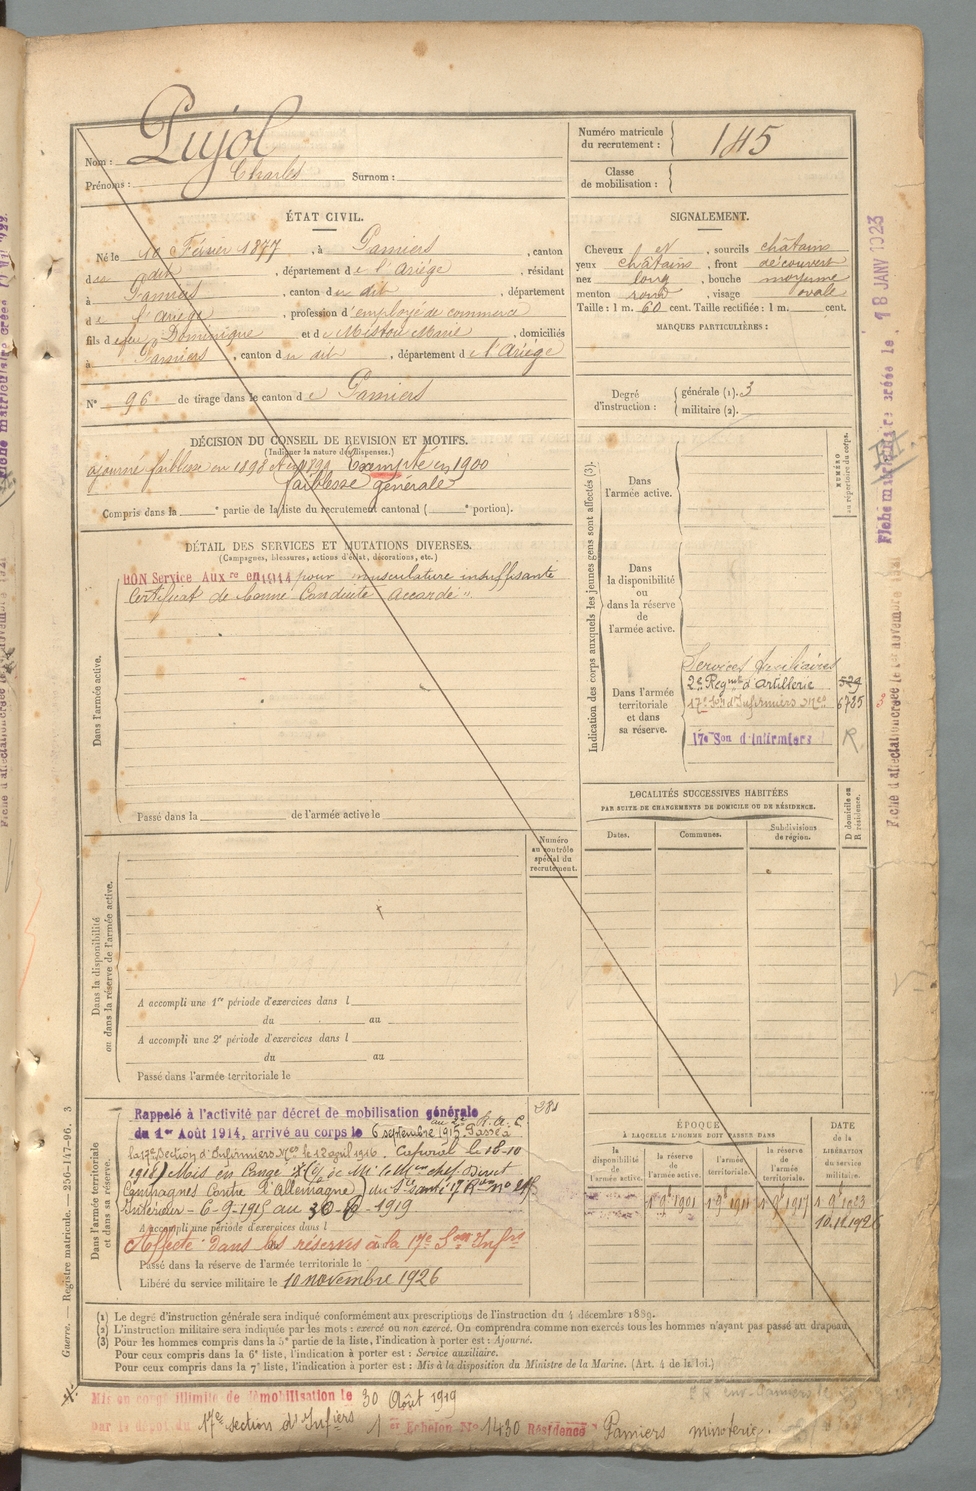 Nom : Pujol
Prénoms : Charles Surnom :
Numéro matricule
du recrutement : 145
Classe
de mobilisation :
ÉTAT CIVIL.
Né le 10 Février 1877, à Pamiers, canton
dudit, département de l'Ariège, résidant
à Pamiers, canton du dit, département
de l'Ariège, profession d'employé de commerce
fils de feu Dominique et de Mestou Marie, domiciliés
à Pamiers, canton du dit, département de l'Ariège
N° 96 de tirage dans le canton de Pamiers
SIGNALEMENT.
Cheveux et, sourcils châtains
yeux châtains, front découvert
nez long, bouche moyenne
menton rond, visage ovale
Taille : 1 m. 60 cent. Taille rectifiée : 1 m. cent.
MARQUES PARTICULIÈRES :
Degré
d'instruction :
générale (1). 3
militaire (2).
DÉCISION DU CONSEIL DE REVISION ET MOTIFS.
(Indiquer la nature des dispenses.)
ajourné faiblesse en 1898 et en 1899 Exempté en 1900
faiblesse générale
Compris dans la e partie de la liste du recrutement cantonal ( e portion).
DÉTAIL DES SERVICES ET MUTATIONS DIVERSES.
(Campagnes, blessures, actions d'éclat, décorations, etc.)
Dans l'armée active.
BON Service Aux re en 1914 pour musculature insuffisante
Certificat de bonne Conduite "accordé".
Passé dans la de l'armée active le
Indication des corps auxquels les jeunes gens sont affectés (3).
NUMÉRO
au répertoire du corps.
Dans
l'armée active.
Dans
la disponibilité
ou
dans la réserve
de
l'armée active.
Dans l'armée
territoriale
et dans
sa réserve.
Services Auxiliaires
2e Regmt d'Artillerie 529
17e Son d'Infirmiers Mres 6785
17e Son d'Infirmiers R.
LOCALITÉS SUCCESSIVES HABITÉES
PAR SUITE DE CHANGEMENTS DE DOMICILE OU DE RÉSIDENCE.
Dates. Communes. Subdivisions
de région.
D domicile ou
R résidence.
Numéro
au contrôle
spécial du
recrutement.
Dans la disponibilité
ou dans la réserve de l'armée active.
A accompli une 1re période d'exercices dans l
du au
A accompli une 2e période d'exercices dans l
du au
Passé dans l'armée territoriale le
Dans l'armée territoriale
et dans sa réserve.
Rappelé à l'activité par décret de mobilisation générale
du 1er Août 1914, arrivé au corps le 6 septembre 1915 au 2e R.A.C. Passé à
la 17e Section d'Infirmiers Mres le 12 avril 1916. Caporal le 18-10
1916
Campagnes Contre l'Allemagne
Intérieur - 6-9-1915 au 30-6-1919
281
A accompli une période d'exercices dans l
Affecté dans les réserves à la 17e Son Infrs
Passé dans la réserve de l'armée territoriale le
Libéré du service militaire le 10 novembre 1926
ÉPOQUE
À LAQUELLE L'HOMME DOIT PASSER DANS
la disponibilité de l'armée active. la réserve de l'armée active. l'armée territoriale. la réserve de l'armée territoriale.
DATE de la LIBÉRATION du service militaire.
1 9b 1901 1 9b 1911 1 9b 1917 1 9b 1923
10.11.1926
(1) Le degré d'instruction générale sera indiqué conformément aux prescriptions de l'instruction du 4 décembre 1889.
(2) L'instruction militaire sera indiquée par les mots : exercé ou non exercé. On comprendra comme non exercés tous les hommes n'ayant pas passé au drapeau.
(3) Pour les hommes compris dans la 5e partie de la liste, l'indication à porter est : Ajourné.
Pour ceux compris dans la 6e liste, l'indication à porter est : Service auxiliaire.
Pour ceux compris dans la 7e liste, l'indication à porter est : Mis à la disposition du Ministre de la Marine. (Art. 4 de la loi.)
Mis en congé illimité de démobilisation le 30 Août 1919
par le dépôt du 17e section d'Infiers 1 er Echelon No 1430 Résidence Pamiers minoterie.
Guerre. — Registre matricule. — 256-147-96. 3
Fiche matriculaire créée le 18 JANV 1923
Fiche d'affectation créée le 1er novembre 1921